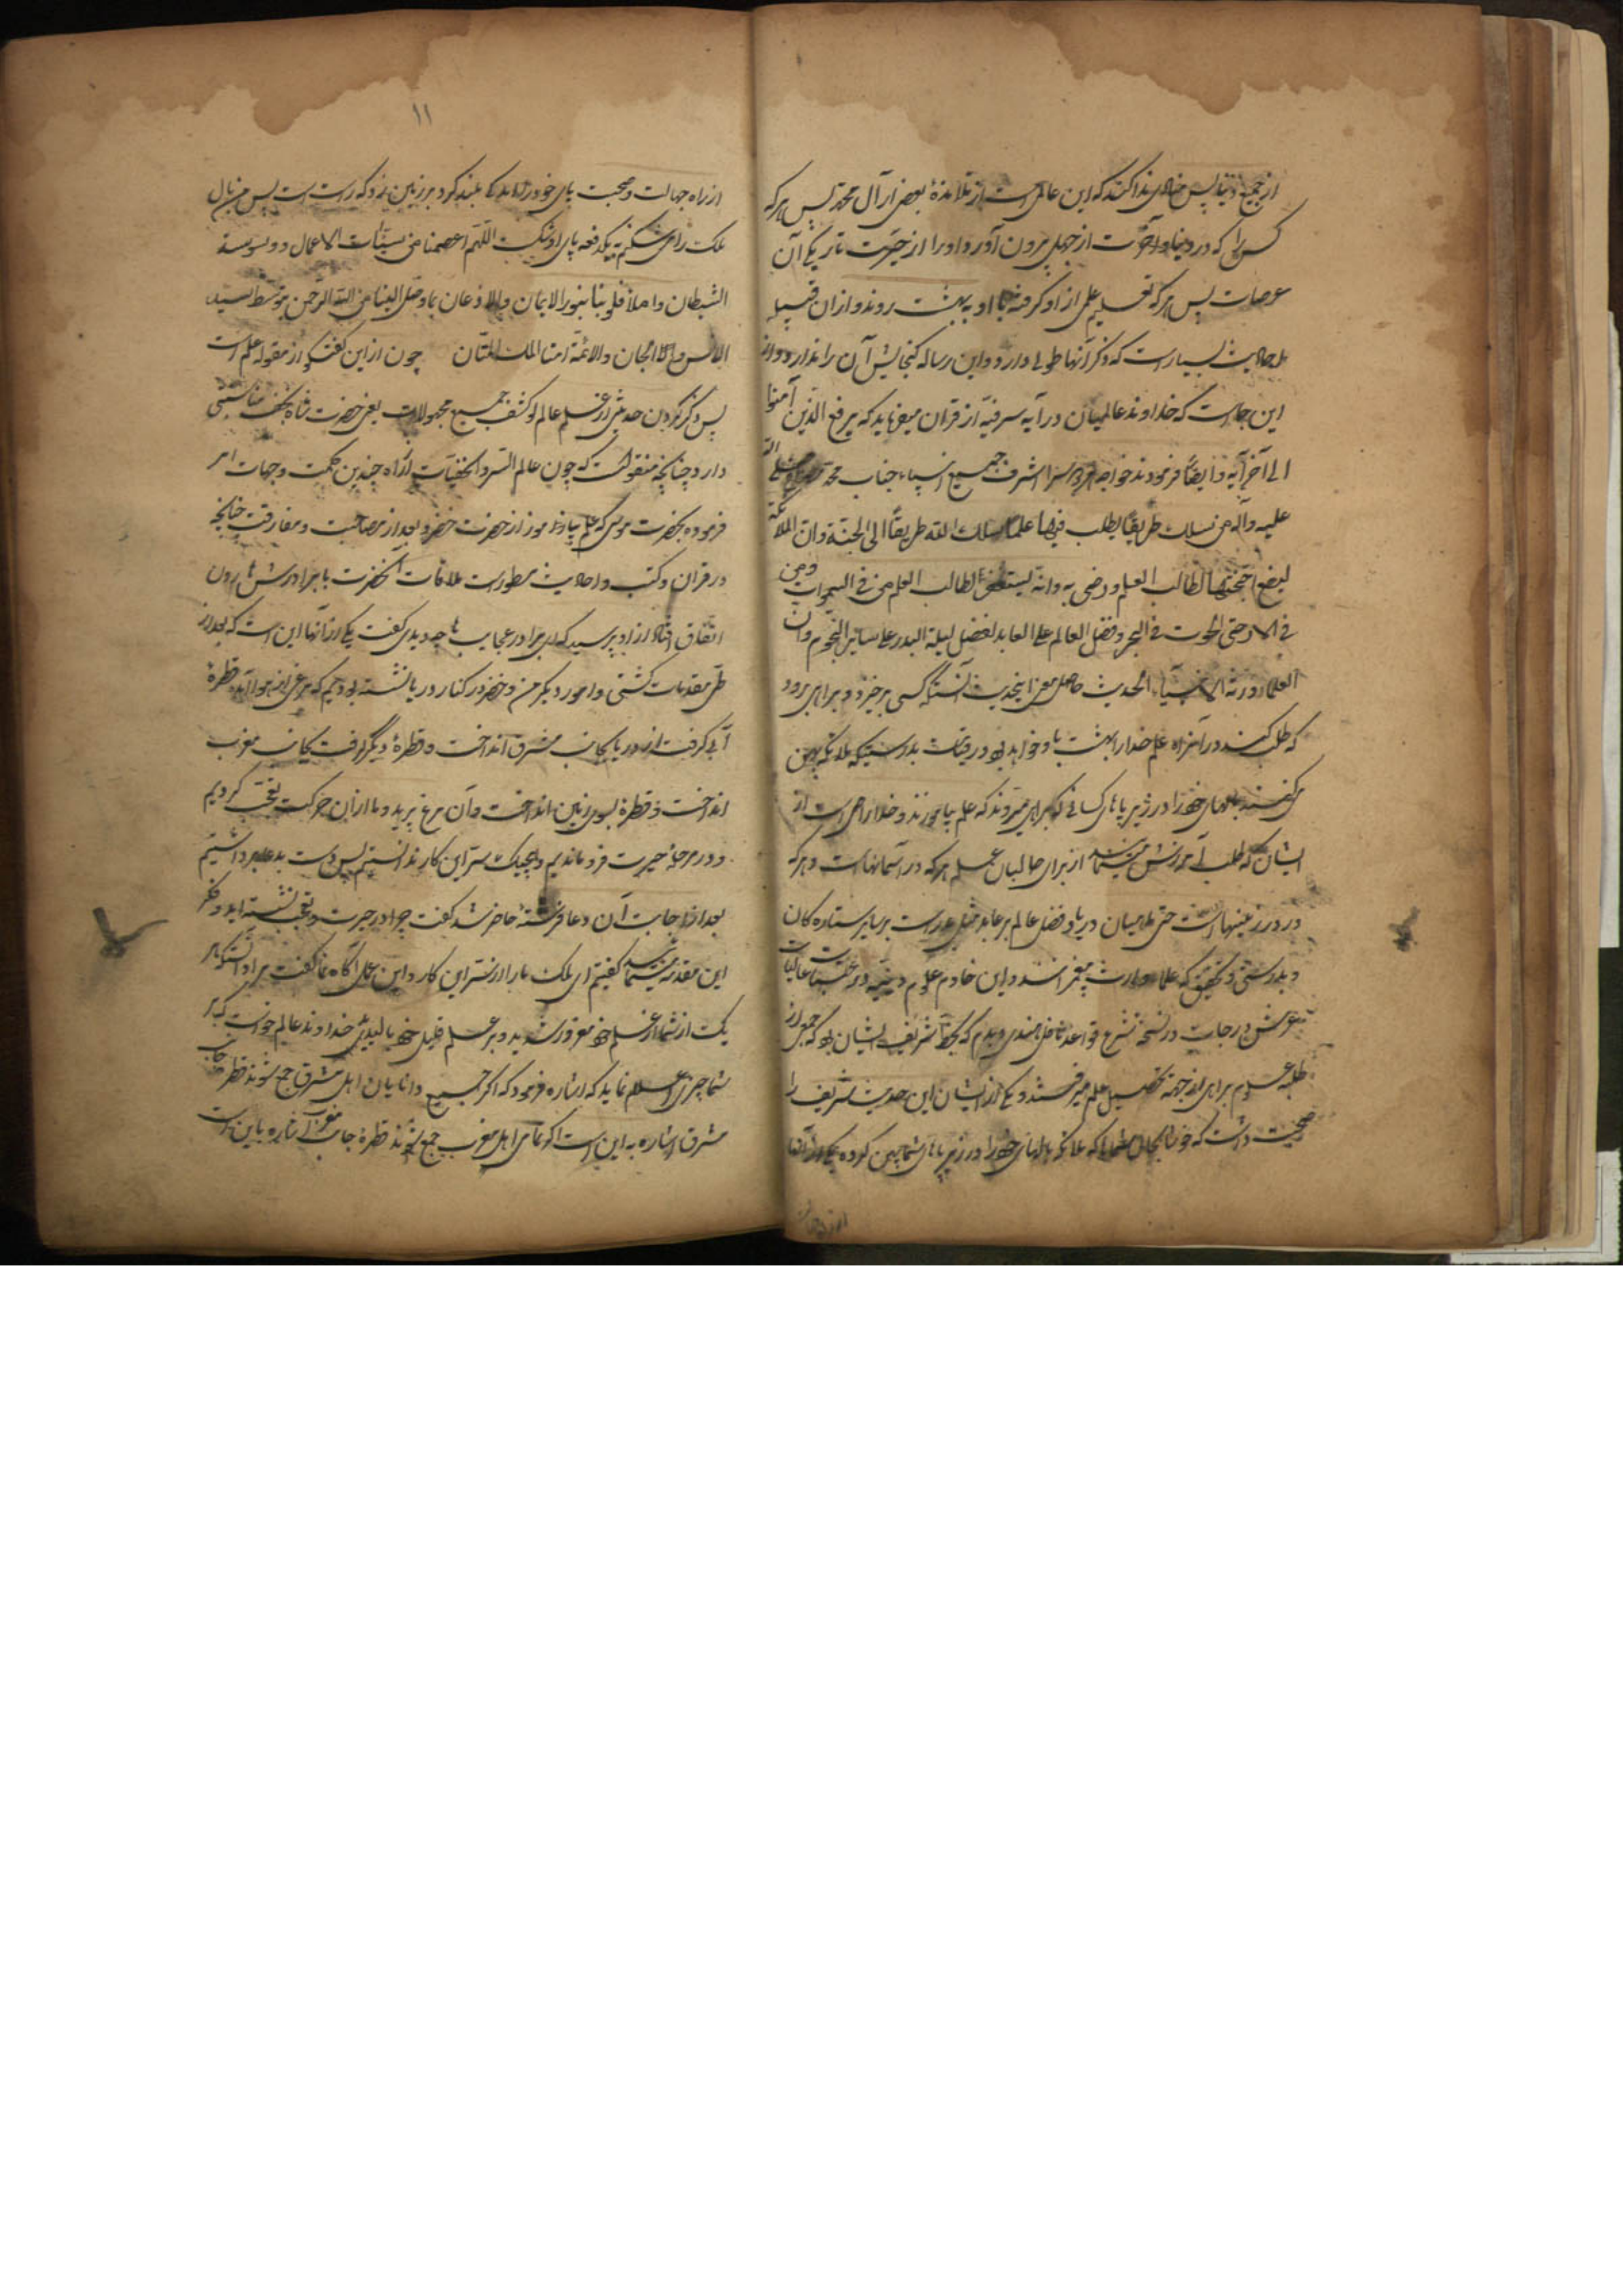 از جمیع دنیا پس منادی ندا کند که این عالمی است از تلامذهٔ بعضی از آل محمد پس هر که
کسی را که در دنیا و آخرت از جهل بیرون آورد او را از حیرت تاریکی آن
عرصات پس هر که تعلیم علمی از او گرفته با او به بهشت روند و از آن قبیل
احادیث بسیار است که ذکر آنها طولی دارد و این رساله گنجایش آن را ندارد و از
این جاست که خداوند عالمیان در آیه شریفه از قرآن میفرماید که یرفع الذین آمنوا
الی آخر آیه و ایضا فرمودند خواجه هر دو سرا اشرف جمیع انبیاء جناب محمد صلی الله
علیه و آله من سلک طریقاً یطلب فیها علماً سلک الله طریقاً الی الجنة و ان الملائکة
لیضع اجنحتها لطالب العلم و رضی به و انه لیستغفر لطالب العلم من فی السموات و من
فی الارض حتی الحوت فی البحر و فضل العالم علی العابد لفضل لیلة البدر علی سایر النجوم و ان
العلماء ورثة الانبیاء الحدیث حاصل معنی اینحدیث آنستکه کسی برخیزد و براهی برود
که طلب کنند در آن راه علم خدا را بهشت با او خواهد بود در قیامت بدرستیکه ملائکه پهن
میکنند بالهای خود را در زیر پاهای کسانی که براهی میروند که علم بیاموزند و خدا راضی است از
ایشان که طلب آمرزش مینماید از برای طالبان علم هر که در آسمانهاست و هر که
در درزمینهاست حتی ماهیان دریا و فضل عالم بر عابد مثل بدر است بر سایر ستاره کان
و بدرستی و تحقیق که علماء وارث پیغمبرانند و این خادم علوم دینیه در عتبات عالیات
عرش درجات در نسخه شرع قواعد فاضل هندی دیدم که بخط شریف ایشان بود که جمعی از
طلبه علوم براهی از جهة تحصیل علم میرفتند و یکی از ایشان این حدیث شریف را
صحبت داشت که خوشا بحال شماها که ملائکه بالهای خود را در زیر پاهای شما پهن کرده یکی از آنها
۱۱
از راه جهالت و صحبت پای خود را بلند کرد بر زمین زد که راست است پس من بال
ملک را می شکنم به یکدفعه پای او شکست اللهم اعصمنا من سیئات الاعمال و وسوسة
الشیطان و املأ قلوبنا بنور الایمان و الاذعان بما وصل الینا من الله الرحمن بتوسط سید
الانس و الجان و الائمة امنا الملک المنان چون از این گفتگو از مقوله علم است
پس ذکر کردن حدیثی از علم عالم لو کشف جمیع مجهولات یعنی حضرت شاه نجف مناسبتی
دارد چنانچه منقولست که چون عالم السر و الخفیات از راه چندین حکمت و جهات امر
فرموده بحضرت موسی که علم بیاموز از حضرت خضر و بعد از مصاحبت و مفارقت چنانچه
در قرآن و کتب و احادیث مسطور است ملاقات آنحضرت با برادرش هارون
اتفاق افتاد از او پرسید که ای برادر عجایب ها چه دیدی گفت یکی از آنها این است که بعد از
طی مقدمات کشتی و امور دیگر من و خضر در کنار دریا نشسته بودیم که مرغی از هوا آمد قطرهٔ
آبی گرفت از دریا بجانب مشرق انداخت و قطرهٔ دیگر گرفت بجانب مغرب
انداخت و قطرهٔ بسوی زمین انداخت و آن مرغ پرید و ما از آن حرکت تعجب کردیم
و در مرحلهٔ حیرت فرو ماندیم و هیچیک سر این کار ندانستیم پس دست بدعا برداشتیم
بعد از اجابت آن دعا فرشتهٔ حاضر شد گفت چرا در حیرت و تعجب نشسته اید و فکر
این مقدمه مینمائید گفتیم ای ملک ما را از سر این کار و این عمل آگاه نما گفت مراد آنستکه هر
یک از شما از علم خود مغرور شدید و بر علم قلیل خود بالیدید خداوند عالم خواست که بر
شما چیزی اعلام نماید که اشاره فرمود که اگر جمیع دانایان اهل مشرق جمع شوند قطره جانب
مشرق اشاره به این است اگر تمامی اهل مغرب جمع شوند قطرهٔ جانب مغرب اشاره باین است